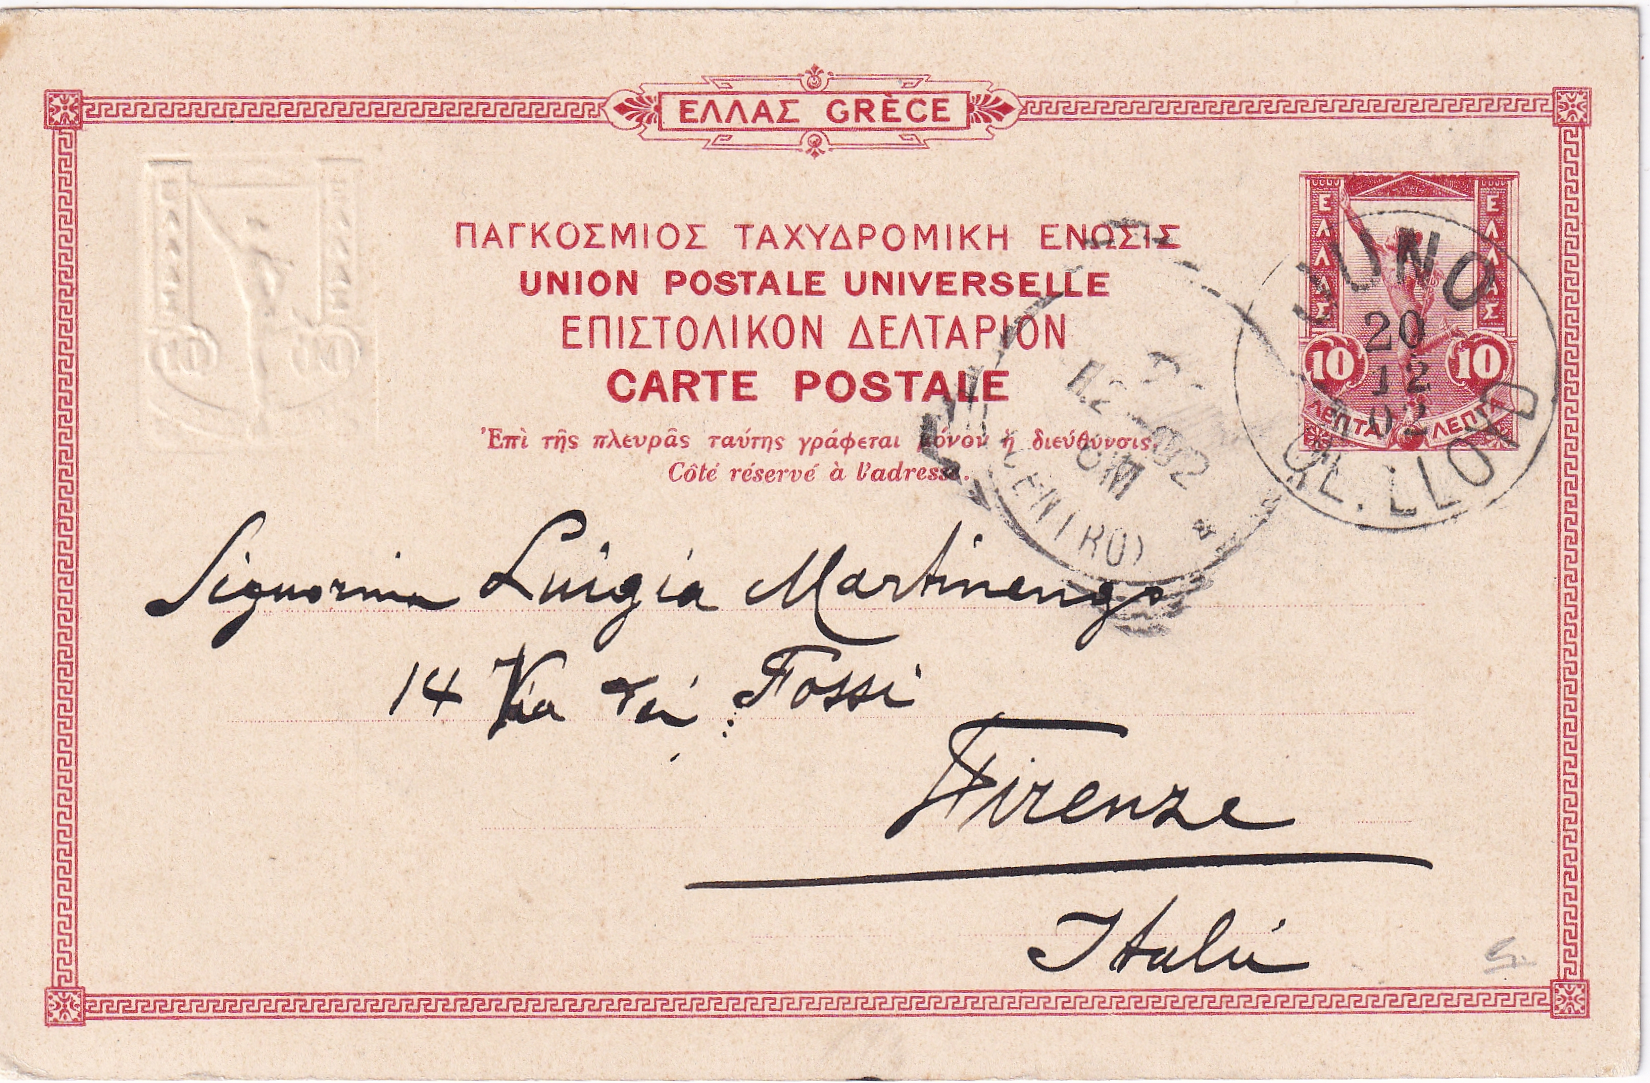 ΕΛΛΑΣ GRÈCE
ΠΑΓΚΟΣΜΙΟΣ ΤΑΧΥΔΡΟΜΙΚΗ ΕΝΩΣΙΣ
UNION POSTALE UNIVERSELLE
ΕΠΙΣΤΟΛΙΚΟΝ ΔΕΛΤΑΡΙΟΝ
CARTE POSTALE
Ἐπὶ τῆς πλευρᾶς ταύτης γράφεται μόνον ἡ διεύθυνσις.
Côté réservé à l'adresse.
ΕΛΛΑΣ
ΕΛΛΑΣ
10 10
ΛΕΠΤΑ ΛΕΠΤΑ
JUNO
20
12
02
OE. LLOYD
12 02
(CENTRO)
Signorina Luigia Martinengo
14 Via dei Fossi
Firenze
Italie